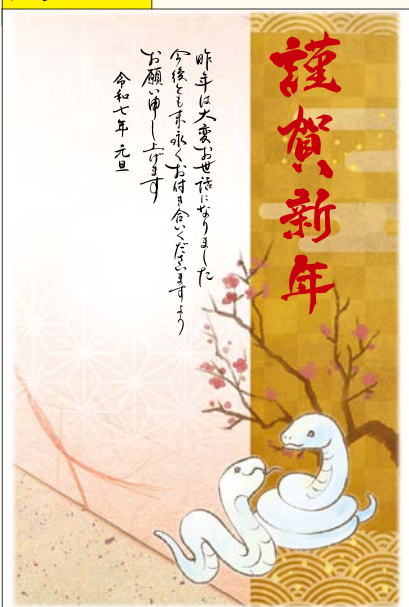 謹賀新年
昨年は大変お世話になりました
今後とも末永くお付き合いくださいますよう
お願い申し上げます
令和七年 元旦